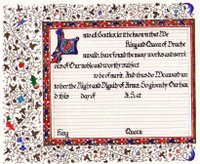 Unto all Gentles, let it be known that We
King and Queen of Drache
nwald, have found the many works and servi
ces of Our noble and worthy subject
to be of merit. And thus do We award un
to her the Right and Dignity of Arms. Do given by Our han
d this day of A.S. at
King Queen